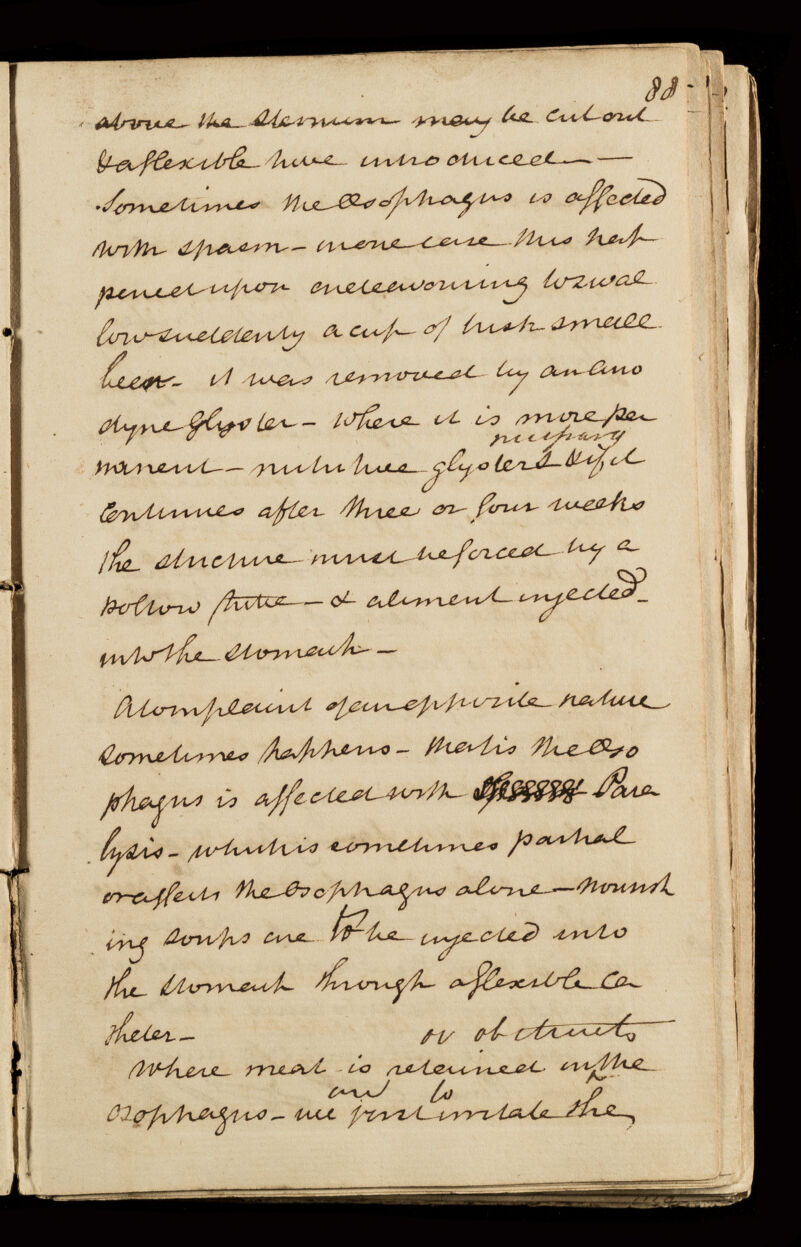 88
above the sternum may be cut out
& a flexible tube introduced —
Sometimes the Œsophagus is affected
with spasm - in one case this hap
pened upon endeavouring to swal
low suddenly a cup of brisk small
beer - it was removed by an ano
dyne Glyster - Where it is more per
necessary
manent - nutritive glysters & if it
continues after three or four weeks
the stricture must be forced by a
hollow tube - & aliment injected
into the stomach -
A complaint of an opposite nature
sometimes happens - that is the Œso
phagus is affected with Para
lysis - which is sometimes partial
or affects the Œsophagus alone - nourish
ing soups are to be injected into
the stomach through a flexible Ca
theter -
or obstructs
Where meat is retained in the
Œsophagus - we first to irritate the